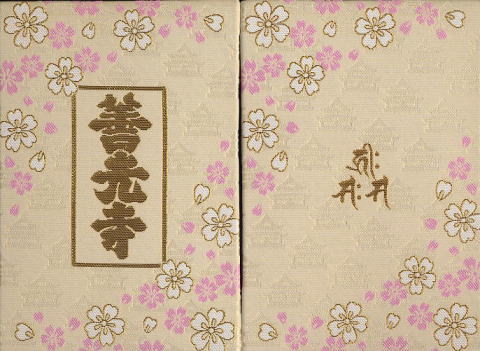 善光寺
𑖮𑖿𑖨𑖱𑖾
𑖭𑖾 𑖭